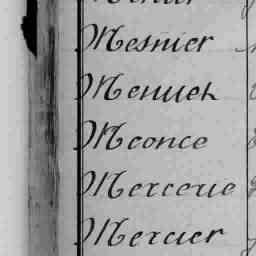 Mesnier
Menueh
Meonce
Mercerie
Mercier